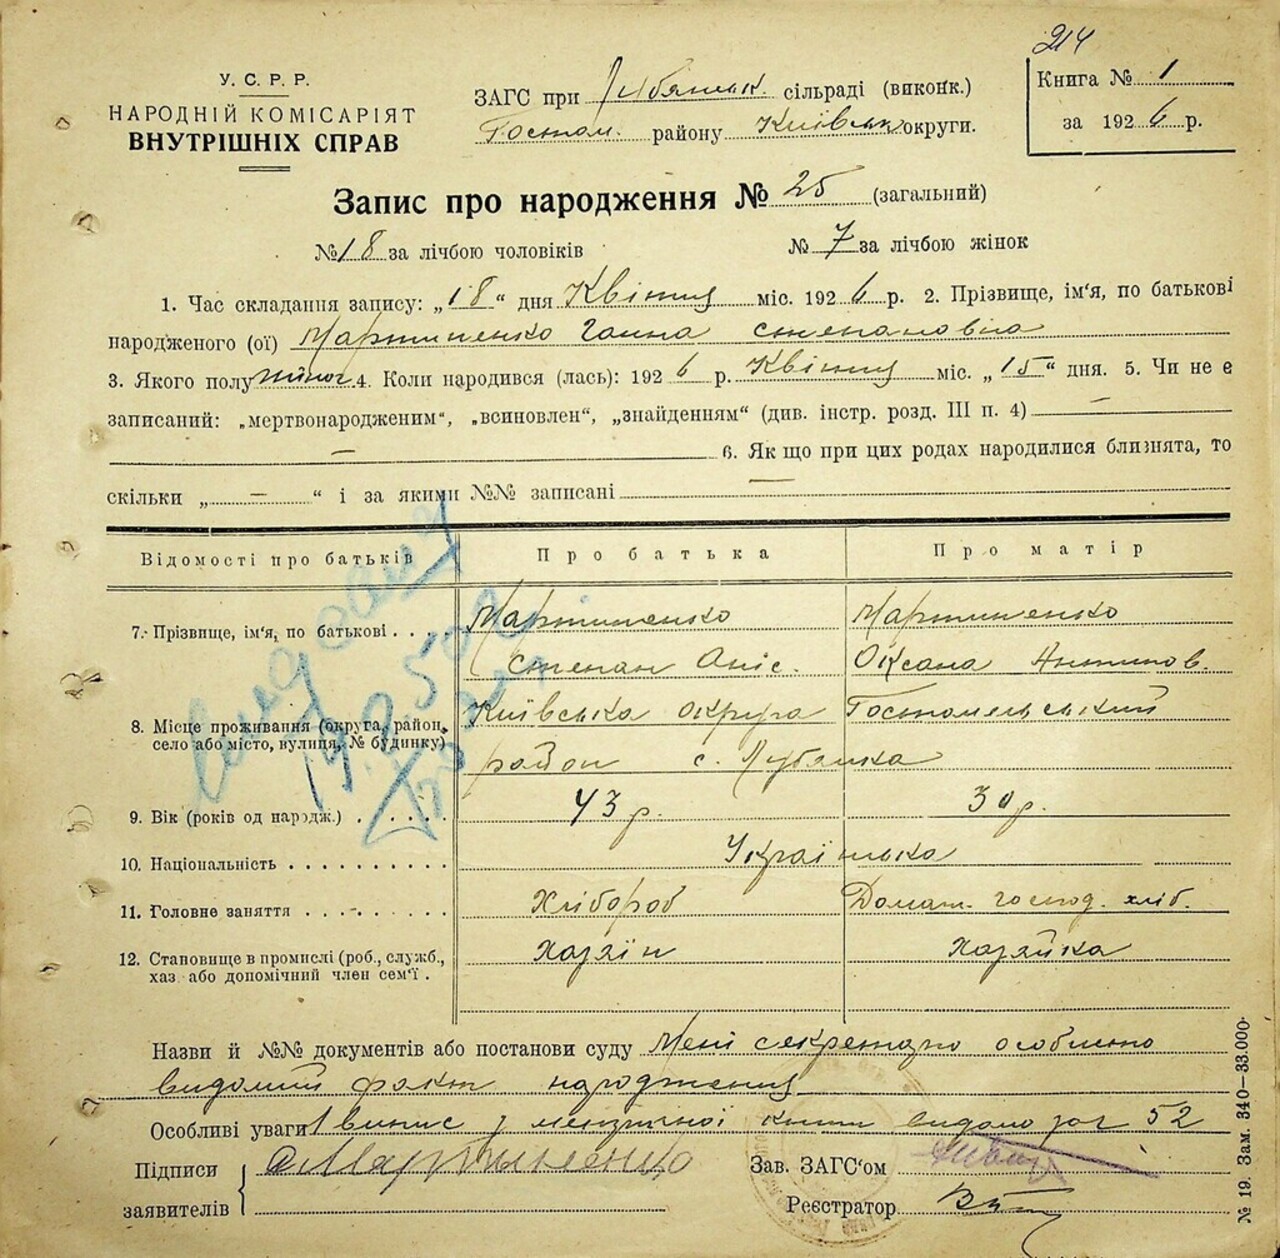 214
У. С. Р. Р.
НАРОДНІЙ КОМІСАРІЯТ
ВНУТРІШНІХ СПРАВ
ЗАГС при Лубянськ. сільраді (виконк.)
Гостом. району Київськ округи.
Книга № 1
за 1926 р.
Запис про народження № 25 (загальний)
№ 18 за лічбою чоловіків № 7 за лічбою жінок
1. Час складання запису: „18“ дня Квітня міс. 1926 р. 2. Прізвище, ім'я, по батькові
народженого (ої) Мартиненко Ганна Степановна
3. Якого полу жіноч. 4. Коли народився (лась): 1926 р. Квітня міс. „15“ дня. 5. Чи не є
записаний: „мертвонародженим“, „всиновлен“, „знайденням“ (див. інстр. розд. III п. 4) —
— 6. Як що при цих родах народилися близнята, то
скільки „—“ і за якими №№ записані —
Відомості про батьків Про батька Про матір
7. Прізвище, ім'я, по батькові . . . . Мартиненко Мартиненко
Степан Аніс. Оксана Антипов.
8. Місце проживання (округа, район, село або місто, вулиця, № будинку) Київська округа Гостомельський
район с. Лубянка
9. Вік (років од народж.) . . . . . 43 р. 30 р.
10. Національність . . . . . . . . . . Українська
11. Головне заняття . . . . . . . . . Хлібороб Домаш. господ. хліб.
12. Становище в промислі (роб., службл., хаз або допомічний член сем'ї . Хазяін Хазяйка
Назви й №№ документів або постанови суду Мені секретарю особисто
видомий факт народження
Особливі уваги 1 випис з метричної книги видано за № 52
Підписи
заявителів
Мартиненко
Зав. ЗАГС'ом
Реєстратор
№ 19. Зам. 340—33.000.